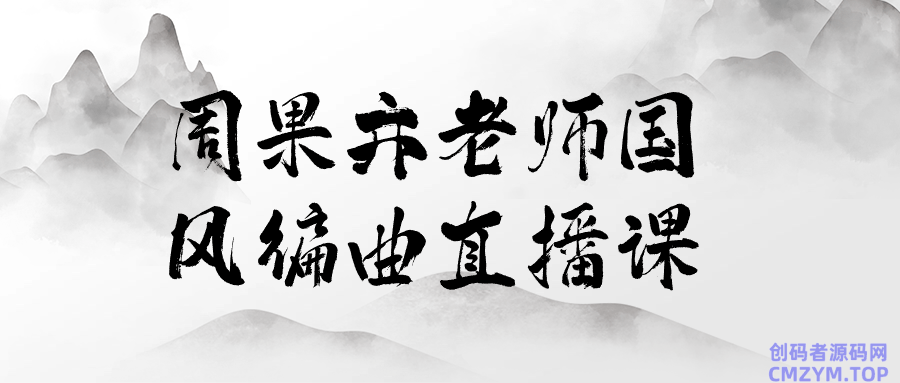 周果卞老师国
风编曲直播课
创码者源码网
CMZYM.TOP